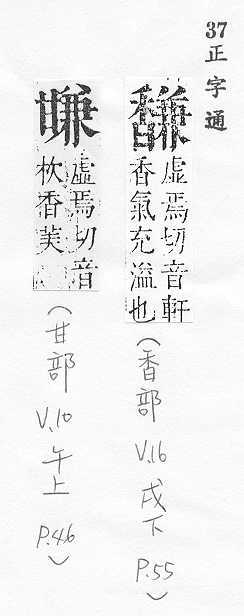 37正字通
馦
虛焉切音軒
香氣充溢也
(香部 V.16 戌下 P.55)
虛焉切音
杴香美
(甘部 V.10 午上 P.46)